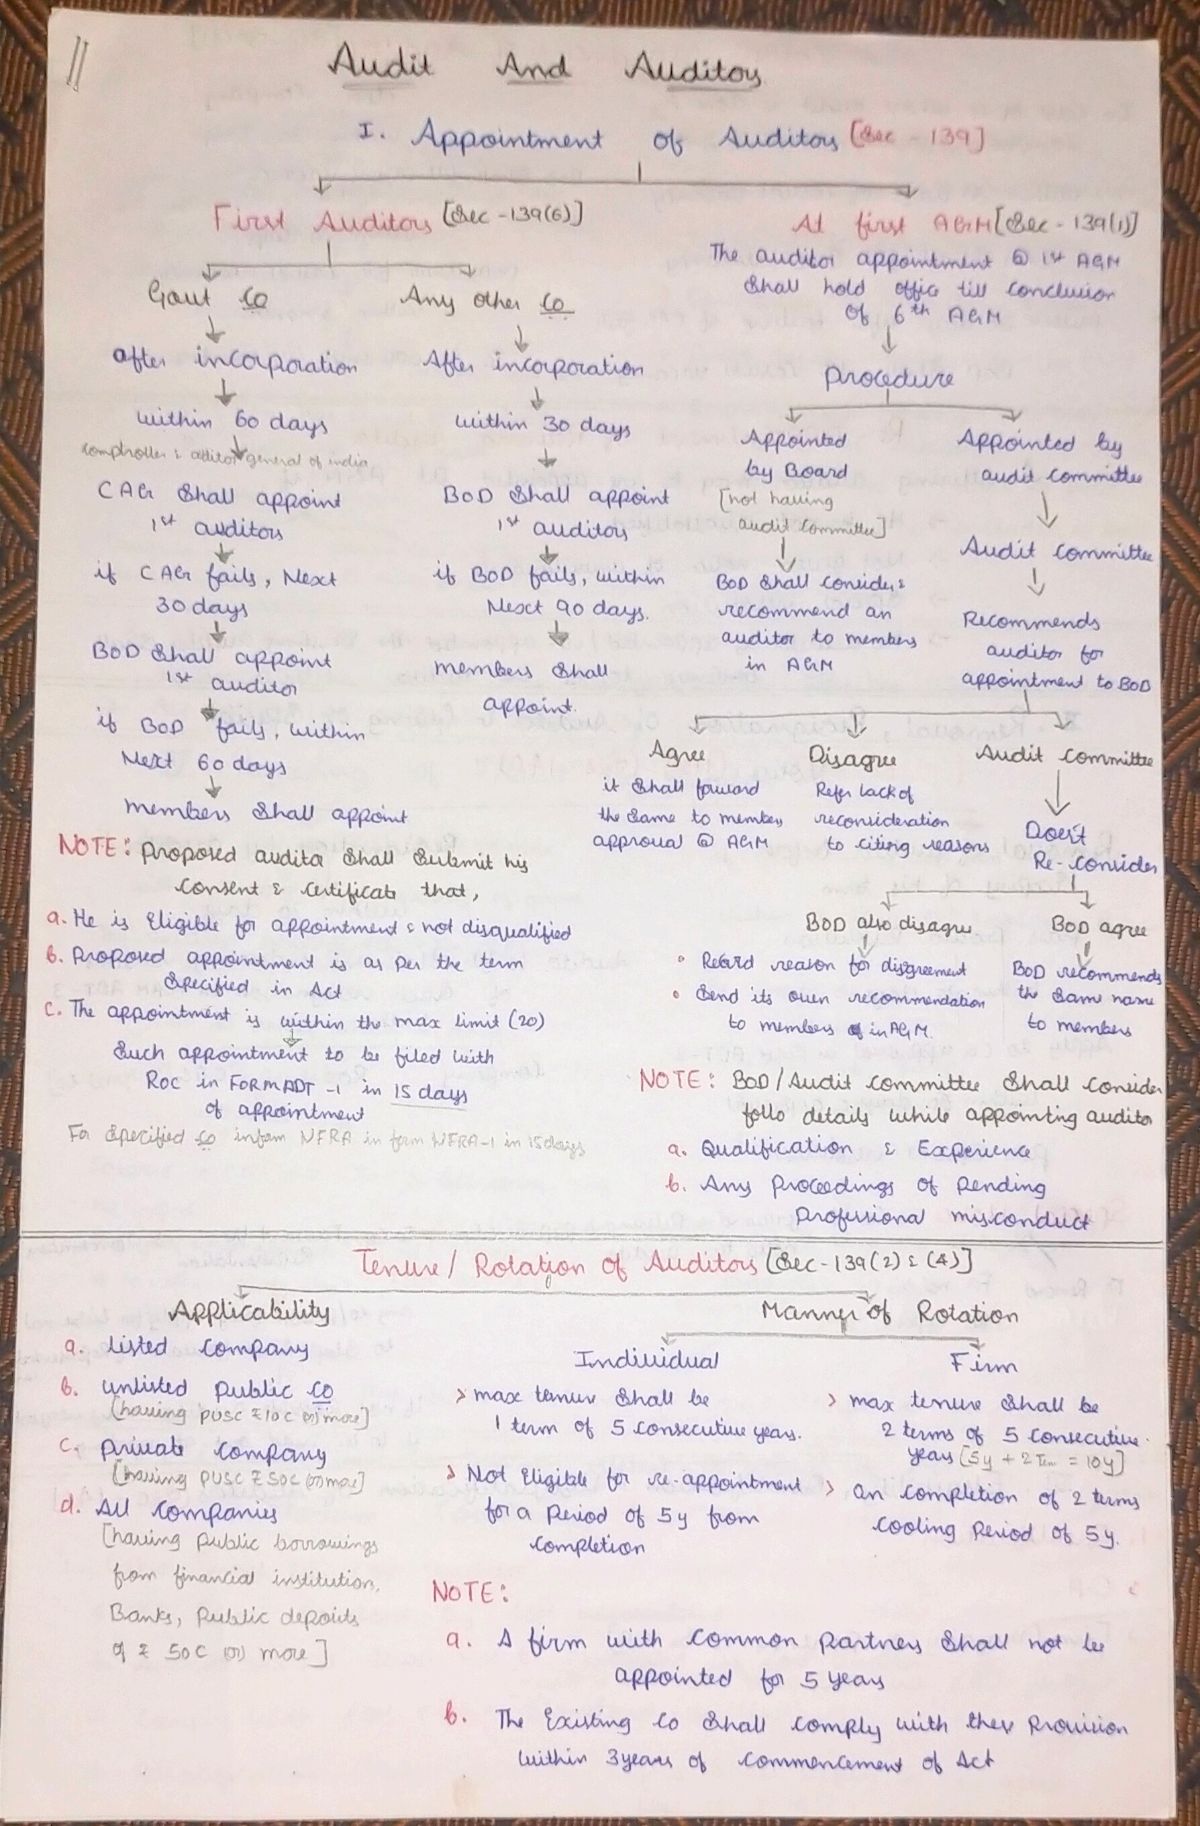 11
Audit And Auditors
I. Appointment of Auditors [Sec - 139]
First Auditors [Sec - 139(6)]
Govt Co
after incorporation
within 60 days
comptroller & auditor general of india
CAG Shall appoint
1st auditors
if CAG fails, Next
30 days
BoD Shall appoint
1st auditor
if BoD fails, within
Next 60 days
members Shall appoint
Any other Co
After incorporation
within 30 days
BoD Shall appoint
1st auditors
if BoD fails, within
Next 90 days.
members Shall
appoint.
NOTE: Proposed auditor Shall Submit his
Consent & Certificate that,
a. He is Eligible for appointment & not disqualified
b. Proposed appointment is as per the term
Specified in Act
c. The appointment is within the max limit (20)
Such appointment to be filed with
ROC in FORM ADT - 1 in 15 days
of appointment
For Specified Co inform NFRA in form NFRA-1 in 15 days
At first AGM [Sec - 139(1)]
The auditor appointment @ 1st AGM
Shall hold office till conclusion
of 6th AGM
Procedure
Appointed
by Board
[not having
audit Committee]
BoD Shall consider &
recommend an
auditor to members
in AGM
Appointed by
audit committee
Audit committee
Recommends
auditor for
appointment to BoD
Agree
it Shall forward
the Same to members
approval @ AGM
Disagree
Refer back of
reconsideration
to citing reasons
Audit committee
Does't
Re-consider
BoD also disagree
• Record reason for disgreement
• Send its own recommendation
to members in AGM.
BoD agree
BoD recommends
the Same name
to members
NOTE: BoD/Audit committee Shall Consider
follo details while appointing auditor
a. Qualification & Experience
b. Any Proceedings of Pending
Professional misconduct
Tenure/ Rotation of Auditors [Sec - 139(2) & (4)]
Applicability
a. listed company
b. unlisted public Co
[having PUSC ₹10C (or) more]
c. private company
[having PUSC ₹50C (or) more]
d. All companies
[having public borrowings
from financial institution,
Banks, Public deposits
of ₹ 50C (or) more]
Manner of Rotation
Individual
> max tenure Shall be
1 term of 5 consecutive years.
> Not Eligible for re-appointment
for a Period of 5y from
completion
Firm
> max tenure Shall be
2 terms of 5 consecutive
years [5y + 2 Term = 10y]
> on completion of 2 terms
cooling Period of 5y.
NOTE:
a. A firm with common Partners Shall not be
appointed for 5 years
b. The Existing Co Shall comply with Provision
within 3 years of commencement of Act